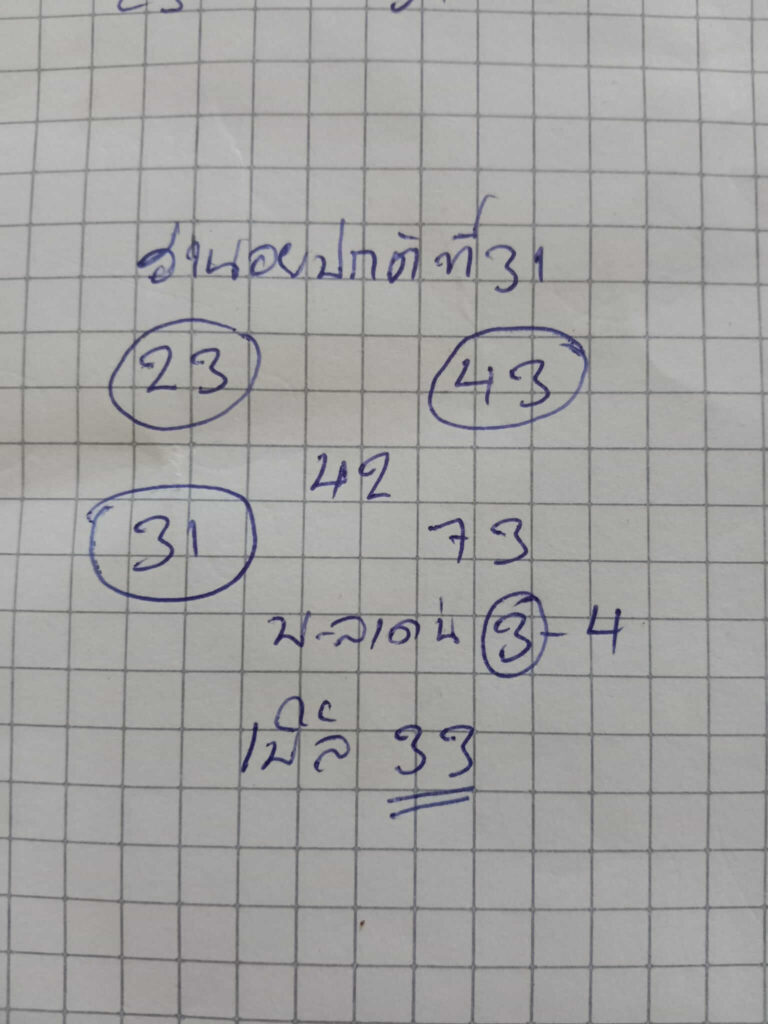 ฮานอยปกติที่31
23 43
42
31
73
บ-ล่าเด่น 3-4
เบิ้ล 33